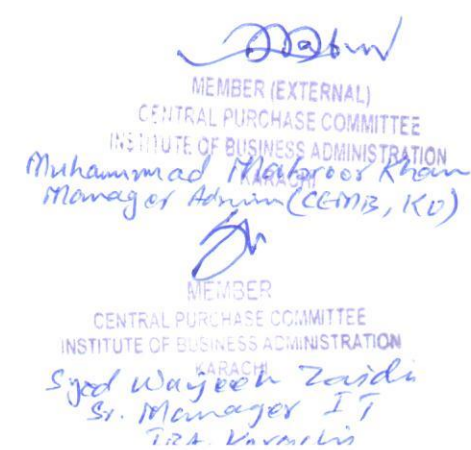 MEMBER (EXTERNAL)
CENTRAL PURCHASE COMMITTEE
INSTITUTE OF BUSINESS ADMINISTRATION
KARACHI
Muhammad Khan
Manager Admin (CEMB, KU)
MEMBER
CENTRAL PURCHASE COMMITTEE
INSTITUTE OF BUSINESS ADMINISTRATION
KARACHI
Syed Wajeeh Zaidi
Sr. Manager IT
IBA